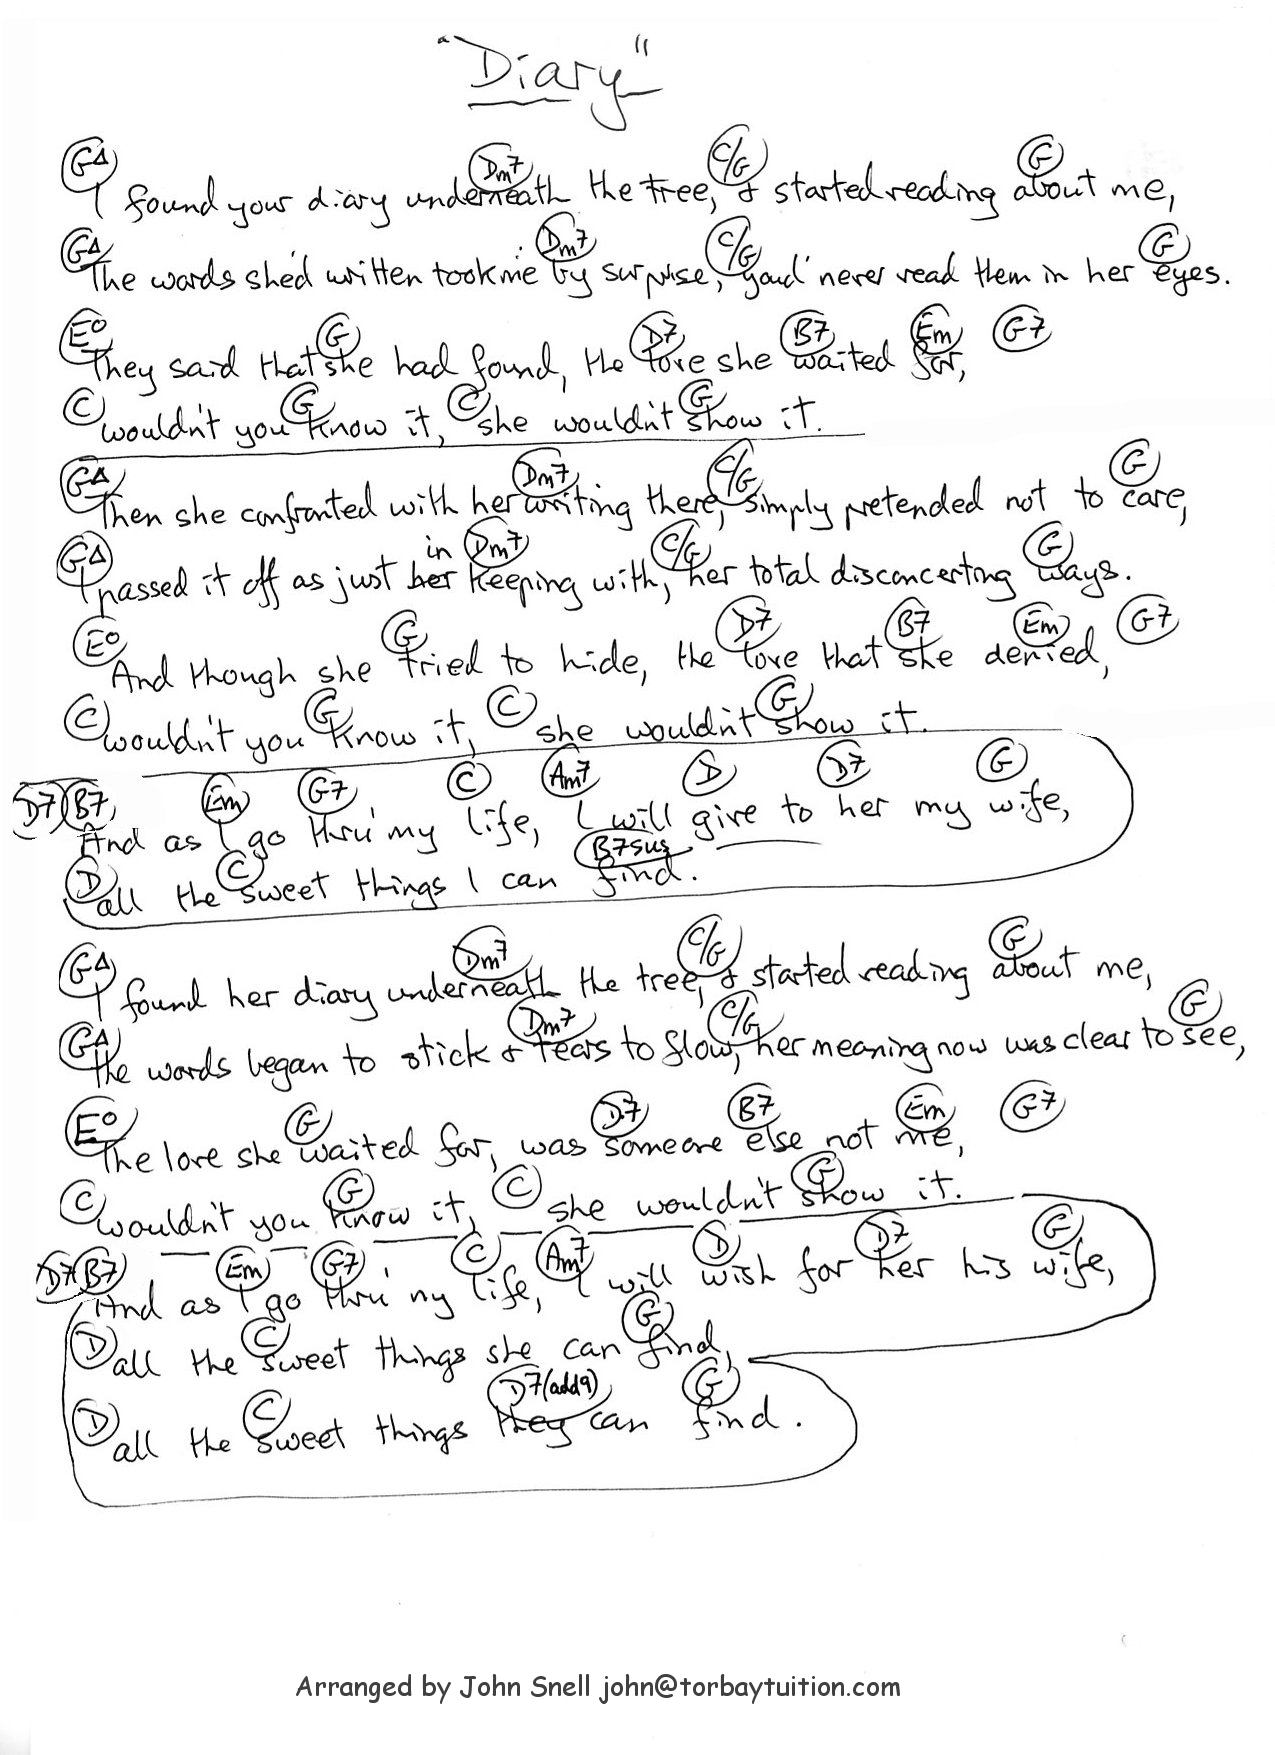 "Diary"
GΔ Dm7 C/G G
I found your diary underneath the tree, & started reading about me,
GΔ Dm7 C/G G
The words she'd written took me by surprise, you'd never read them in her eyes.
E° G D7 B7 Em G7
They said that she had found, the love she waited for,
C G C G
wouldn't you know it, she wouldn't show it.
GΔ Dm7 C/G G
Then she confronted with her writing there, simply pretended not to care,
GΔ in Dm7 C/G G
I passed it off as just her keeping with, her total disconcerting ways.
E° G D7 B7 Em G7
And though she tried to hide, the love that she denied,
C G C G
wouldn't you know it, she wouldn't show it.
D7 B7 Em G7 C Am7 D D7 G
And as I go thru' my life, I will give to her my wife,
D C B7sus
all the sweet things I can find.
GΔ Dm7 C/G G
I found her diary underneath the tree, & started reading about me,
GΔ Dm7 C/G G
The words began to stick & tears to flow, her meaning now was clear to see,
E° G D7 B7 Em G7
The love she waited for, was someone else not me,
C G C G
wouldn't you know it, she wouldn't show it.
D7 B7 Em G7 C Am7 D D7 G
And as I go thru' my life, I will wish for her his wife,
D C G
all the sweet things she can find,
D C D7(add9) G
all the sweet things they can find.
Arranged by John Snell john@torbaytuition.com